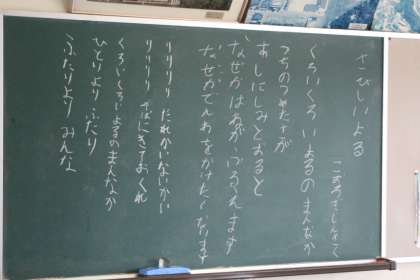 さびしいよる
こおろぎしんさく
くろいくろいよるのまんなか
つちのつめたさが
あしにしみとおると
なぜかはねがふるえます
なぜかでんわをかけたくなります
りりりり だれかいないかい
りりりり そばにきておくれ
くろいくろいよるのまんなか
ひとりよりふたり
ふたりよりみんな